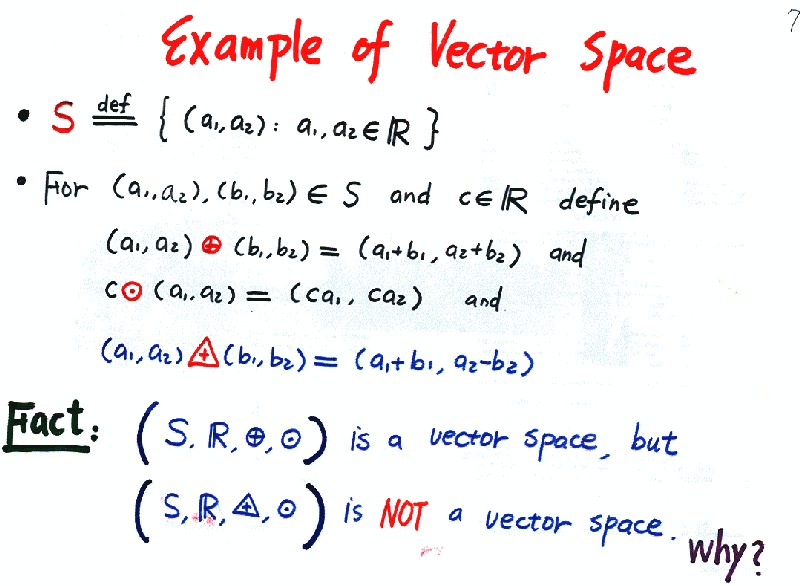 7
Example of Vector Space
• S ≝ { (a₁, a₂) : a₁, a₂ ∈ ℝ }
• For (a₁, a₂), (b₁, b₂) ∈ S and c ∈ ℝ define
(a₁, a₂) ⊕ (b₁, b₂) = (a₁+b₁, a₂+b₂) and
c ⊙ (a₁, a₂) = (ca₁, ca₂) and
(a₁, a₂) ⨹ (b₁, b₂) = (a₁+b₁, a₂-b₂)
Fact: (S, ℝ, ⊕, ⊙) is a vector space, but
(S, ℝ, ⨹, ⊙) is NOT a vector space.
Why?